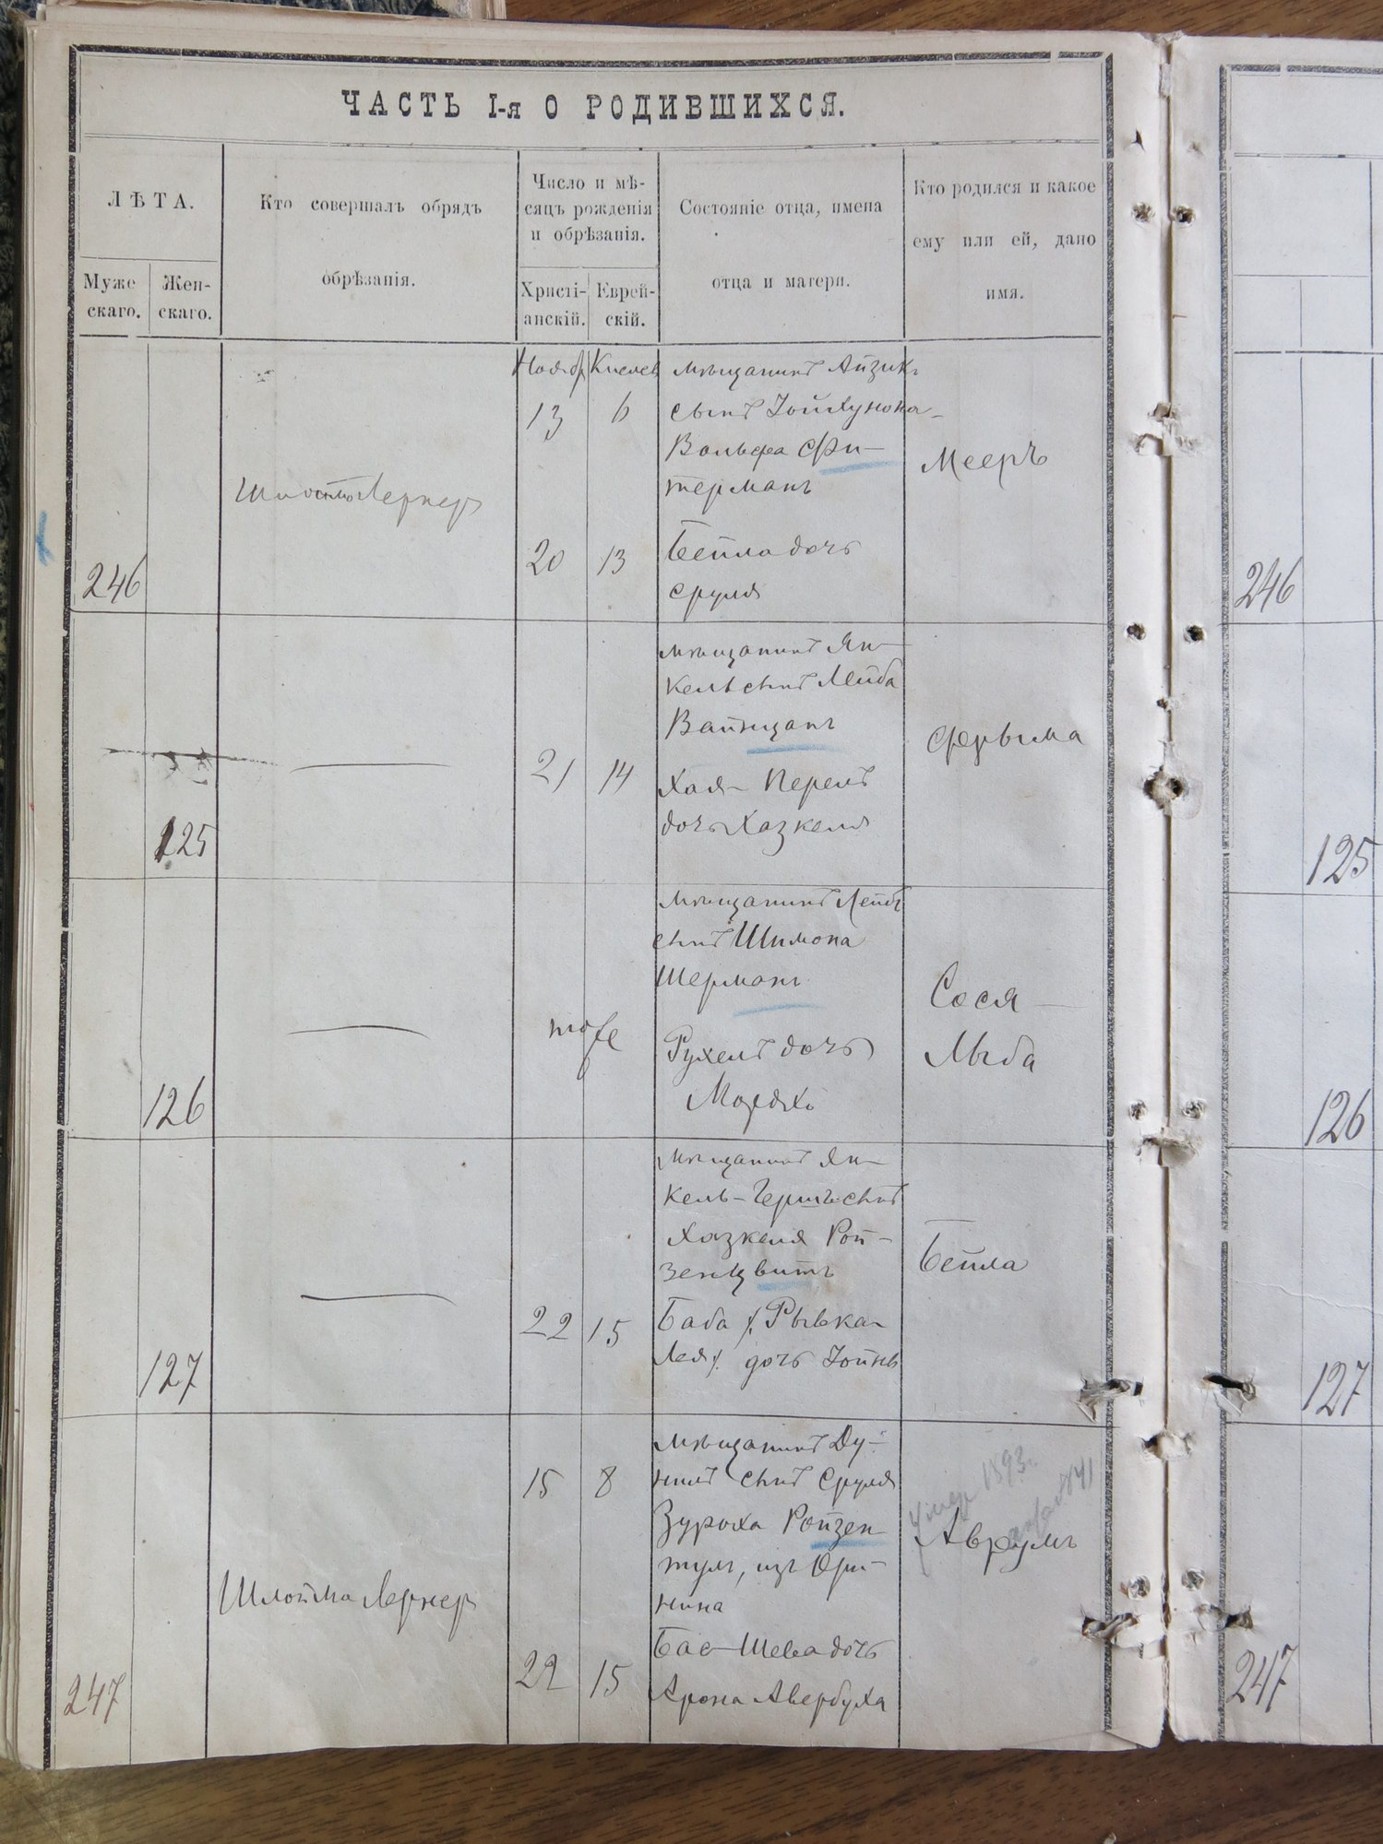 ЧАСТЬ I-я О РОДИВШИХСЯ.
ЛѢТА.
Муже
скаго.
Жен-
скаго.
Кто совершалъ обрядъ
обрѣзанія.
Число и мѣ-
сяцъ рожденія
и обрѣзанія.
Христі-
анскій.
Еврей-
скій.
Состояніе отца, имена
отца и матери.
Кто родился и какое
ему или ей, дано
имя.
246
Лернеръ
Ноябр
Кислев
13
6
20
13
мѣщанинъ Айзикъ
сынъ
Вольфа Фи-
терманъ
Бейла дочь
Сруля
Мееръ
246
125
21
14
мѣщанинъ Ян-
кель сынъ Лейба
Вайнцанъ
Хая-Перель
дочь Хазкеля
Фрыма
125
126
тоже
мѣщанинъ Лейбъ
сынъ Шимона
Шерманъ
Рухель дочь
Мордко
Сося-
Лыба
126
127
22
15
мѣщанинъ Ян-
кель-Гершъ сынъ
Хазкеля Рой-
зенцвитъ
Баба /: Рывка
Лея /: дочь Іойны
Бейла
127
247
Шлойма Лернеръ
15
8
22
15
мѣщанинъ Ду-
нилъ сынъ Сруля
Зуроха Ройзен-
тулъ, изъ Ори-
нина
Бас-Шева дочь
Арона Авербуха
1893
Аврумъ
247